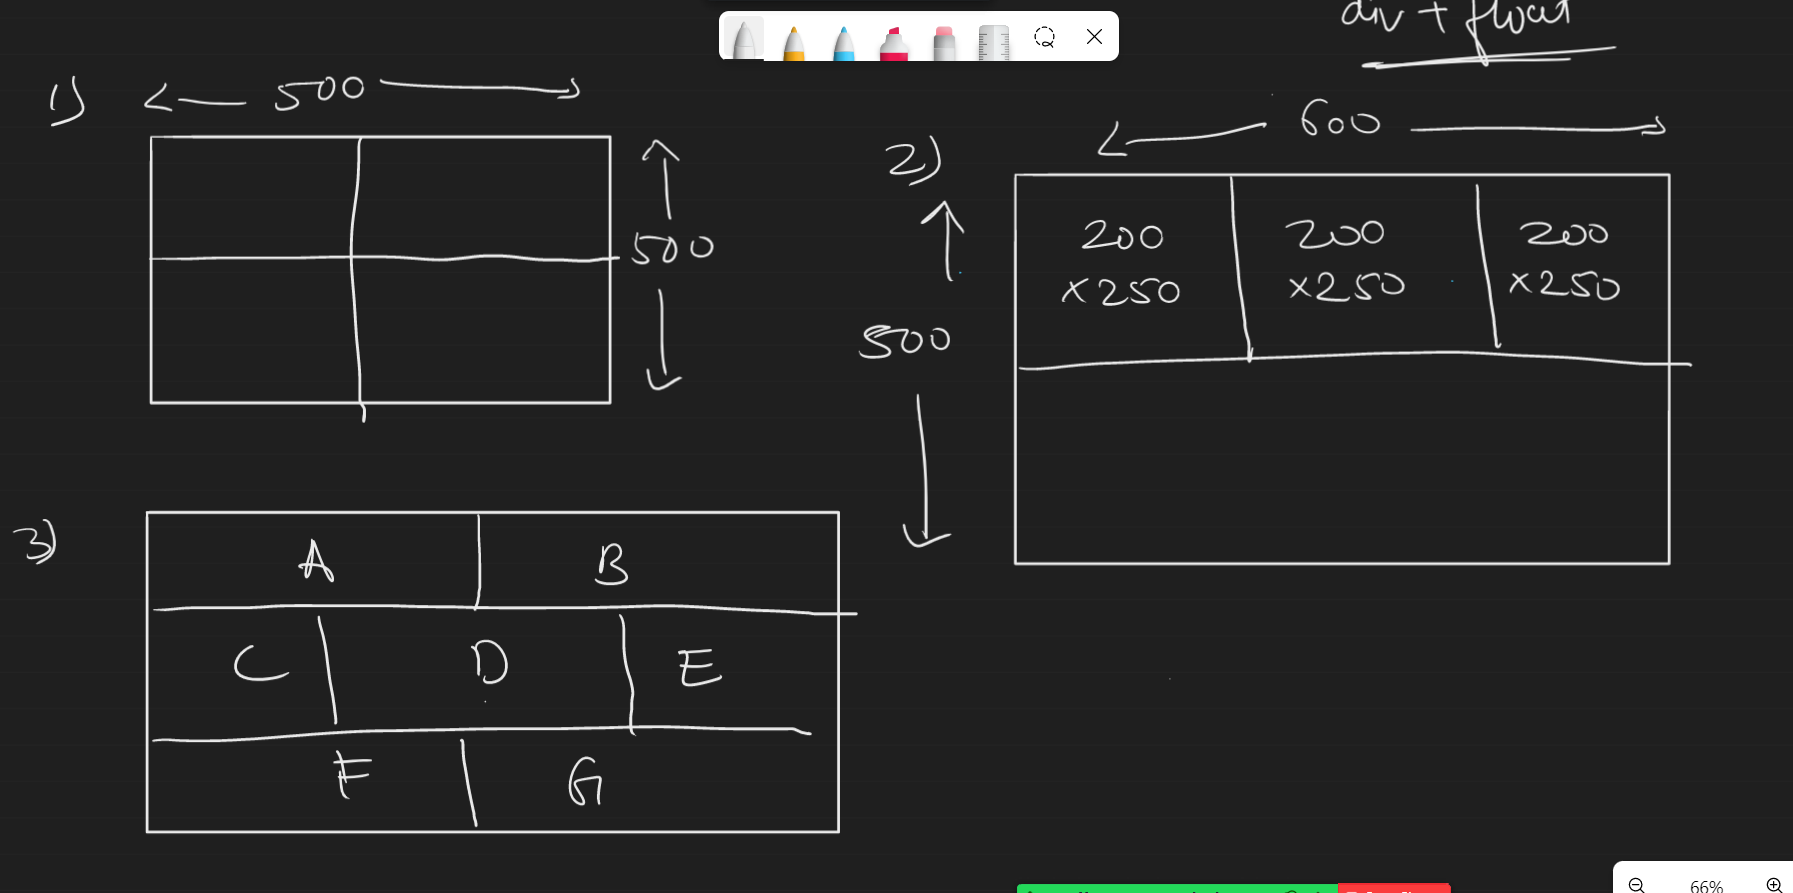 div + float
1)
500
500
2)
600
500
200
×250
200
×250
200
×250
3)
A
B
C
D
E
F
G
66%